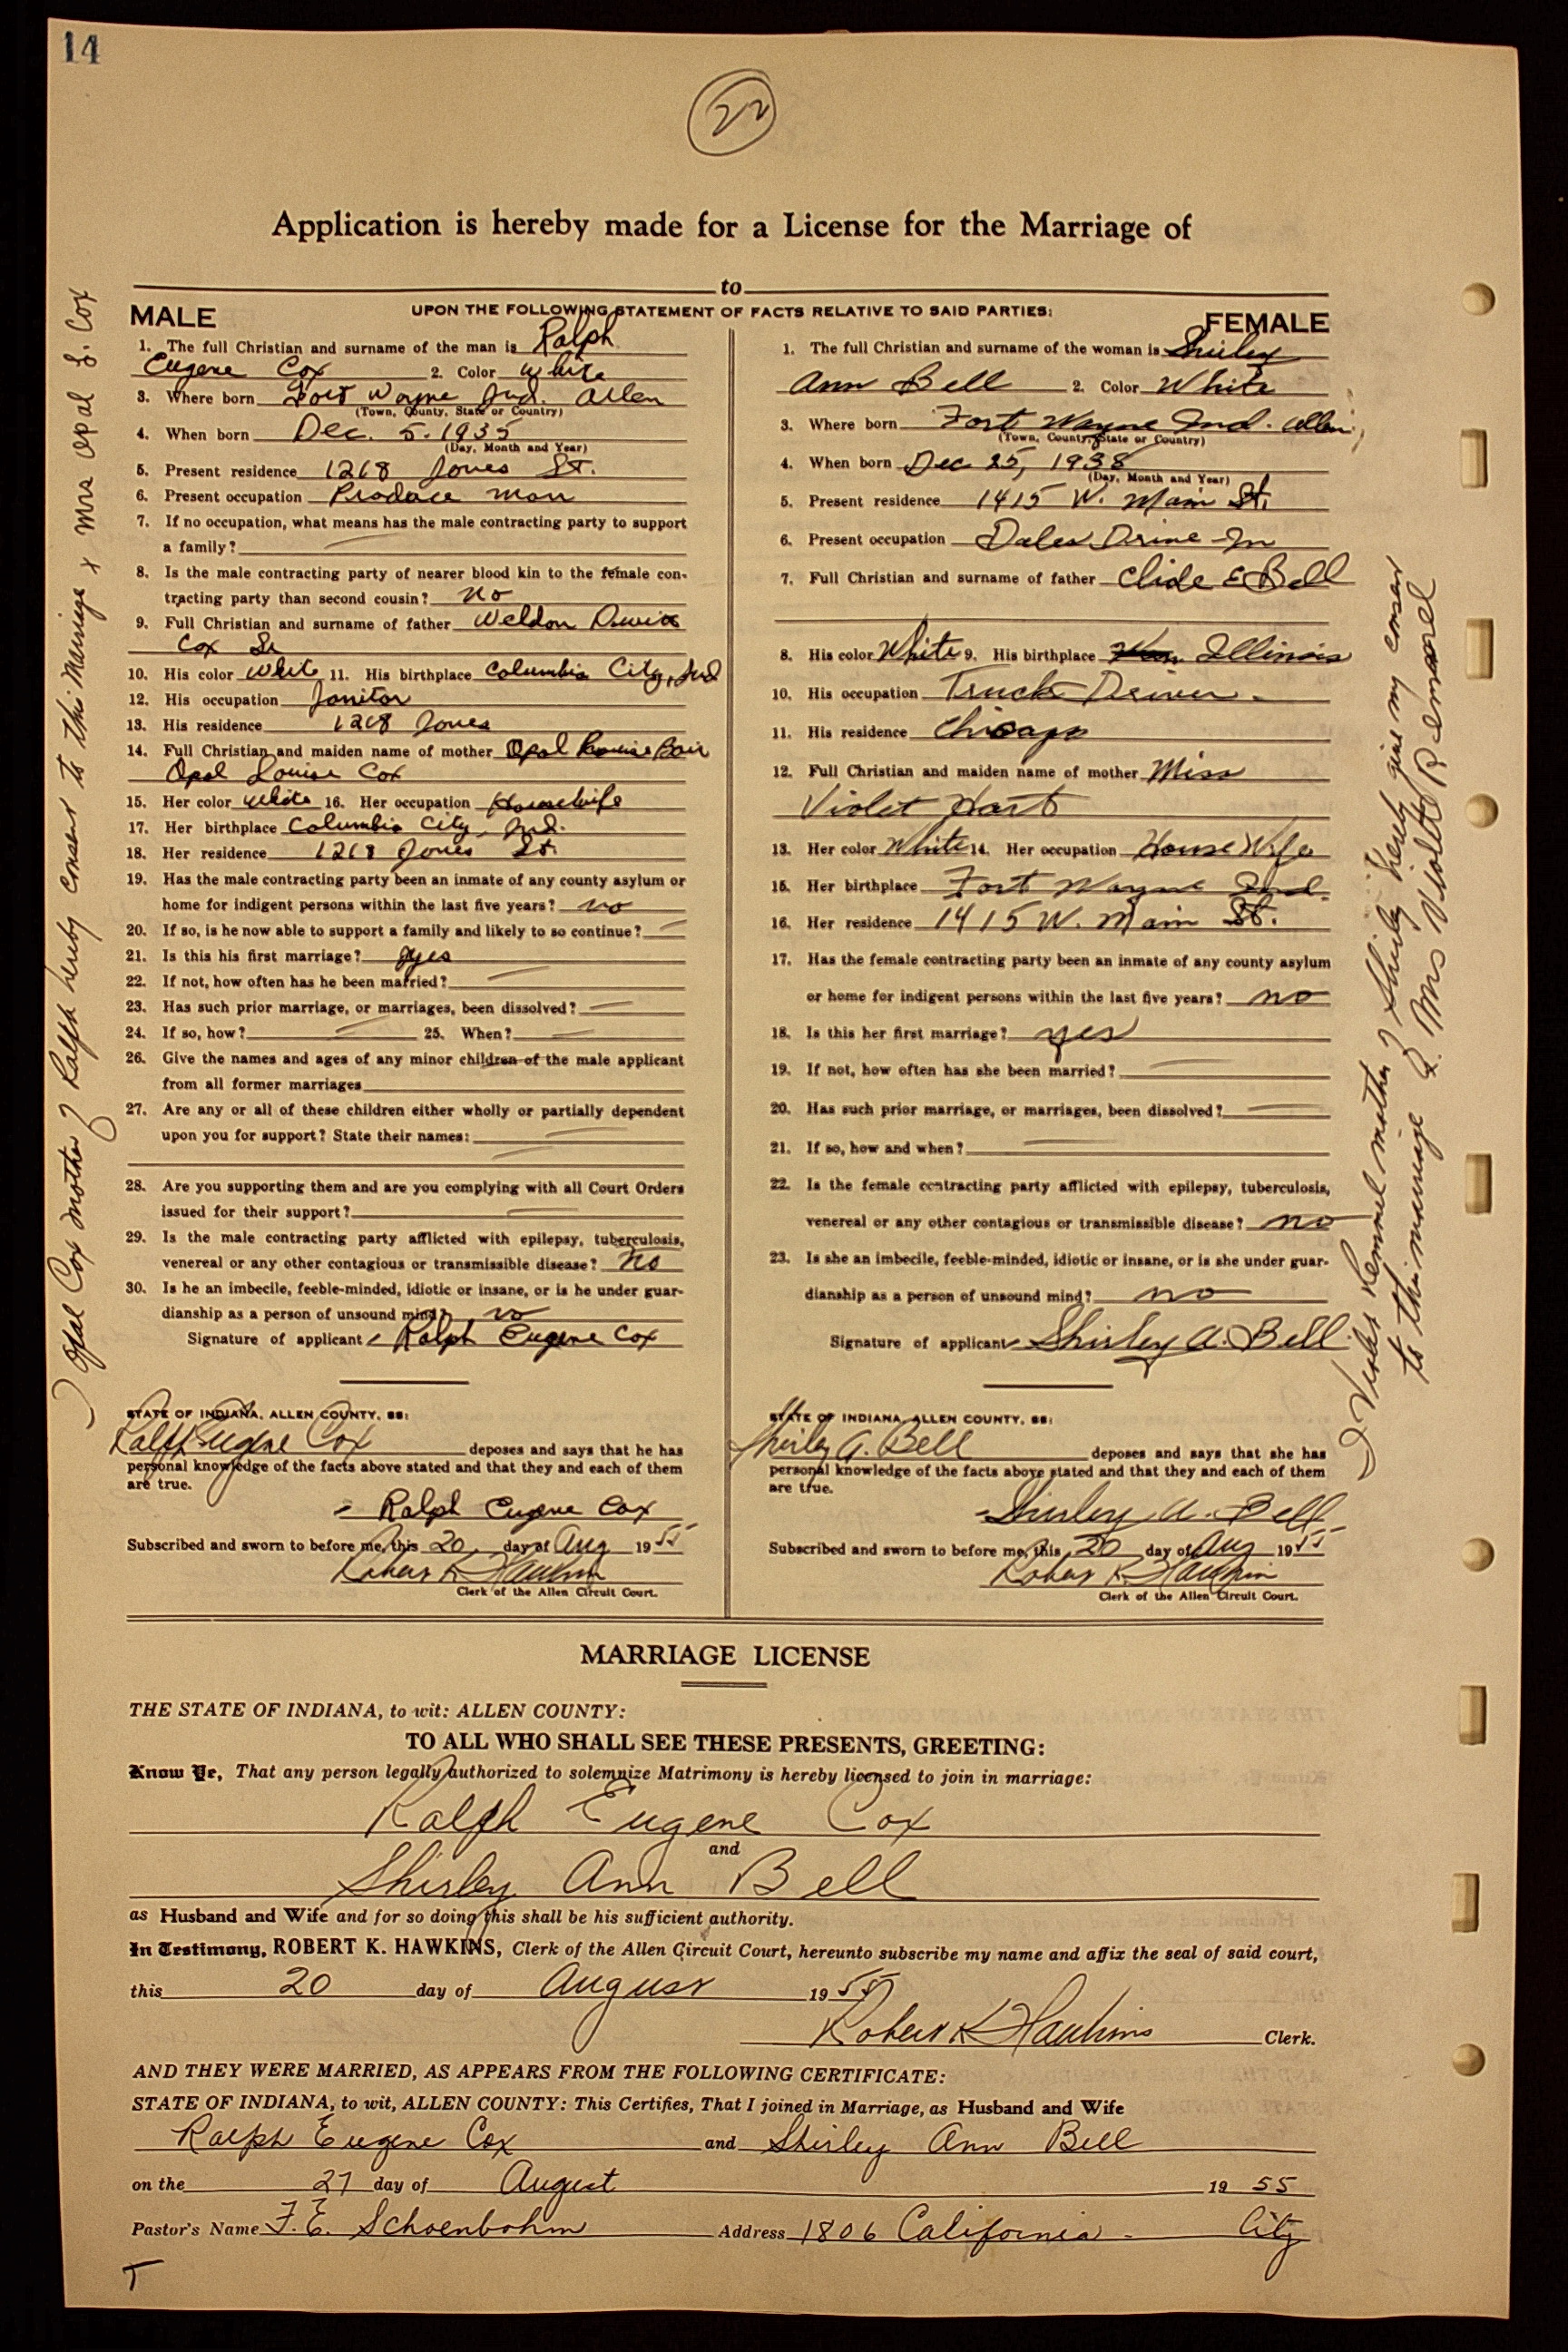 14
22
Application is hereby made for a License for the Marriage of
to
UPON THE FOLLOWING STATEMENT OF FACTS RELATIVE TO SAID PARTIES:
MALE
1. The full Christian and surname of the man is Ralph
Eugene Cox 2. Color White
3. Where born Fort Wayne Ind. Allen
(Town, County, State or Country)
4. When born Dec. 5. 1935
(Day, Month and Year)
5. Present residence 1268 Jones St.
6. Present occupation Produce man
7. If no occupation, what means has the male contracting party to support
a family?
8. Is the male contracting party of nearer blood kin to the female con-
tracting party than second cousin? no
9. Full Christian and surname of father Weldon
Cox Sr
10. His color White 11. His birthplace Columbia City, Ind
12. His occupation Janitor
13. His residence 1268 Jones
14. Full Christian and maiden name of mother Opal Louise Bair
Opal Louise Cox
15. Her color White 16. Her occupation Housewife
17. Her birthplace Columbia City, Ind.
18. Her residence 1268 Jones St.
19. Has the male contracting party been an inmate of any county asylum or
home for indigent persons within the last five years? no
20. If so, is he now able to support a family and likely to so continue?
21. Is this his first marriage? yes
22. If not, how often has he been married?
23. Has such prior marriage, or marriages, been dissolved?
24. If so, how? 25. When?
26. Give the names and ages of any minor children of the male applicant
from all former marriages
27. Are any or all of these children either wholly or partially dependent
upon you for support? State their names:
28. Are you supporting them and are you complying with all Court Orders
issued for their support?
29. Is the male contracting party afflicted with epilepsy, tuberculosis,
venereal or any other contagious or transmissible disease? No
30. Is he an imbecile, feeble-minded, idiotic or insane, or is he under guar-
dianship as a person of unsound mind? no
Signature of applicant Ralph Eugene Cox
STATE OF INDIANA, ALLEN COUNTY, SS:
Ralph Eugene Cox deposes and says that he has
personal knowledge of the facts above stated and that they and each of them
are true.
Ralph Eugene Cox
Subscribed and sworn to before me, this 20 day of Aug 1955
Robert K Hawkins
Clerk of the Allen Circuit Court.
FEMALE
1. The full Christian and surname of the woman is Shirley
Ann Bell 2. Color White
3. Where born Fort Wayne Ind. Allen
(Town, County, State or Country)
4. When born Dec 25, 1938
(Day, Month and Year)
5. Present residence 1415 W. Main St.
6. Present occupation Dales Drive-In
7. Full Christian and surname of father Clide E Bell
8. His color White 9. His birthplace Illinois
10. His occupation Truck Driver
11. His residence Chicago
12. Full Christian and maiden name of mother Miss
Violet Hart
13. Her color White 14. Her occupation House Wife
15. Her birthplace Fort Wayne Ind.
16. Her residence 1415 W. Main St.
17. Has the female contracting party been an inmate of any county asylum
or home for indigent persons within the last five years? no
18. Is this her first marriage? yes
19. If not, how often has she been married?
20. Has such prior marriage, or marriages, been dissolved?
21. If so, how and when?
22. Is the female contracting party afflicted with epilepsy, tuberculosis,
venereal or any other contagious or transmissible disease? no
23. Is she an imbecile, feeble-minded, idiotic or insane, or is she under guar-
dianship as a person of unsound mind? no
Signature of applicant Shirley A. Bell
STATE OF INDIANA, ALLEN COUNTY, SS:
Shirley A. Bell deposes and says that she has
personal knowledge of the facts above stated and that they and each of them
are true.
Shirley A. Bell
Subscribed and sworn to before me, this 20 day of Aug 1955
Robert K Hawkins
Clerk of the Allen Circuit Court.
I Opal Cox mother of Ralph hereby consent to this marriage x Mrs Opal L. Cox
I Violet mother of Shirley hereby give my consent
to this marriage Mrs Violet
MARRIAGE LICENSE
THE STATE OF INDIANA, to wit: ALLEN COUNTY:
TO ALL WHO SHALL SEE THESE PRESENTS, GREETING:
Know Ye, That any person legally authorized to solemnize Matrimony is hereby licensed to join in marriage:
Ralph Eugene Cox
and
Shirley Ann Bell
as Husband and Wife and for so doing this shall be his sufficient authority.
In Testimony, ROBERT K. HAWKINS, Clerk of the Allen Circuit Court, hereunto subscribe my name and affix the seal of said court,
this 20 day of August 1955
Robert K Hawkins Clerk.
AND THEY WERE MARRIED, AS APPEARS FROM THE FOLLOWING CERTIFICATE:
STATE OF INDIANA, to wit, ALLEN COUNTY: This Certifies, That I joined in Marriage, as Husband and Wife
Ralph Eugene Cox and Shirley Ann Bell
on the 27 day of August 1955
Pastor's Name F. E. Schoenbohm Address 1806 California - City
T